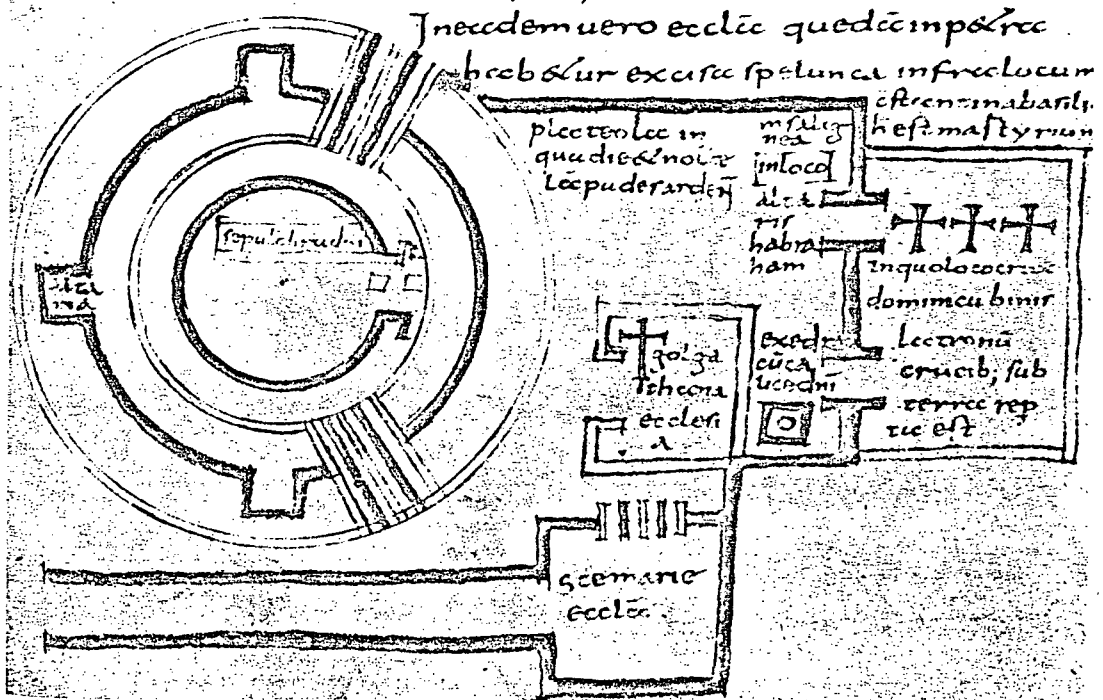 Ineademuero ecclā quedā inpetra
habetur excisa spelunca infralocum
cstantinabasili
hestmartyrium
plateola in
qua die & nocte
lāpades ardent
msalig
nea
inloco
alta
ris
habra
ham
inquolococrux
dominicu binis
latronū
crucib; sub
terra rep
ta est
sepulchrudni
alta
ria
golga
thana
ecclesi
a
exedr
cūca
licedni
scemarie
ecclā